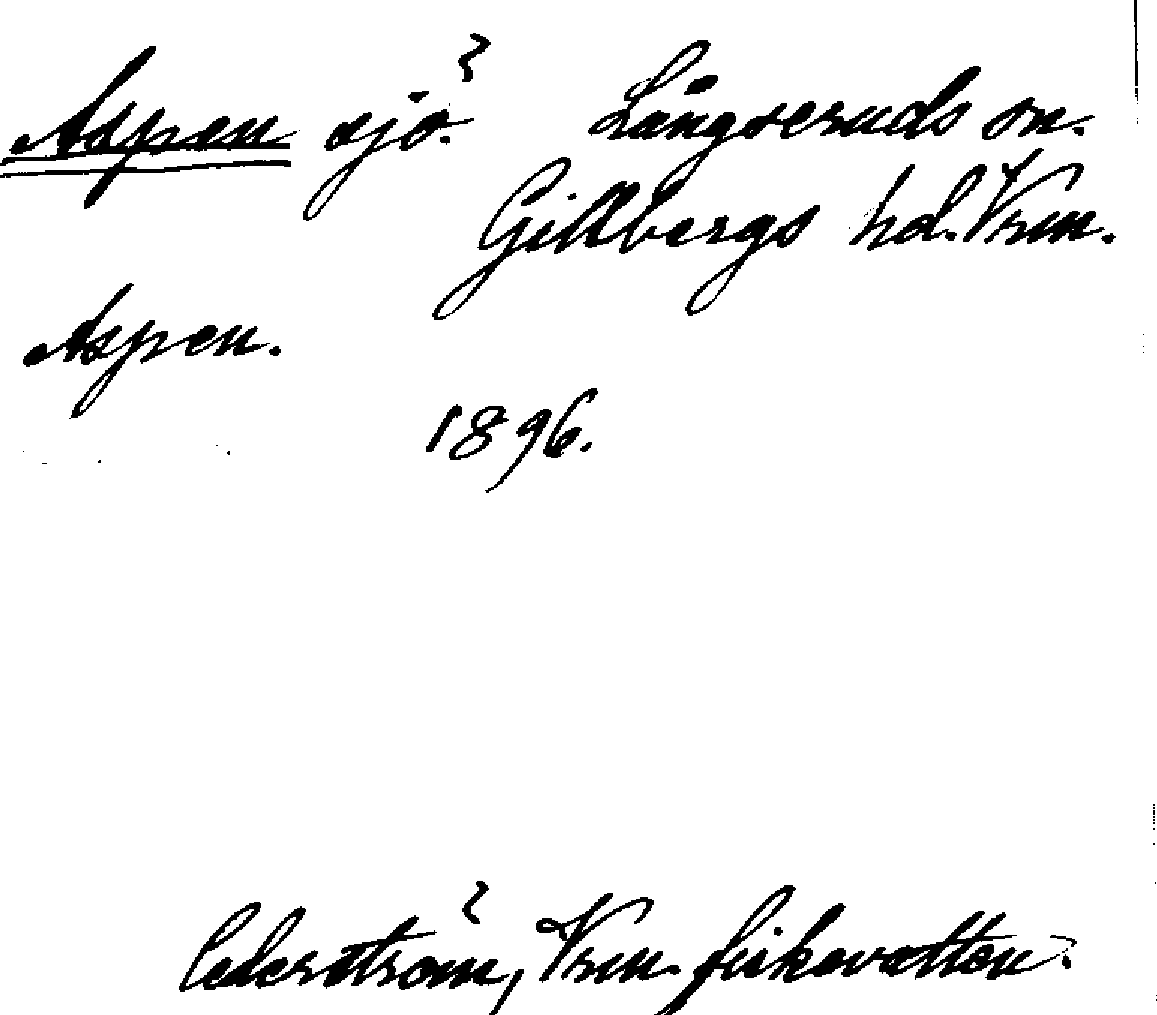 Aspen sjö. Långseruds sn.
Gillbergs hd. Vrm.
Aspen.
1896.
Cederström, Vrm. fiskevatten.